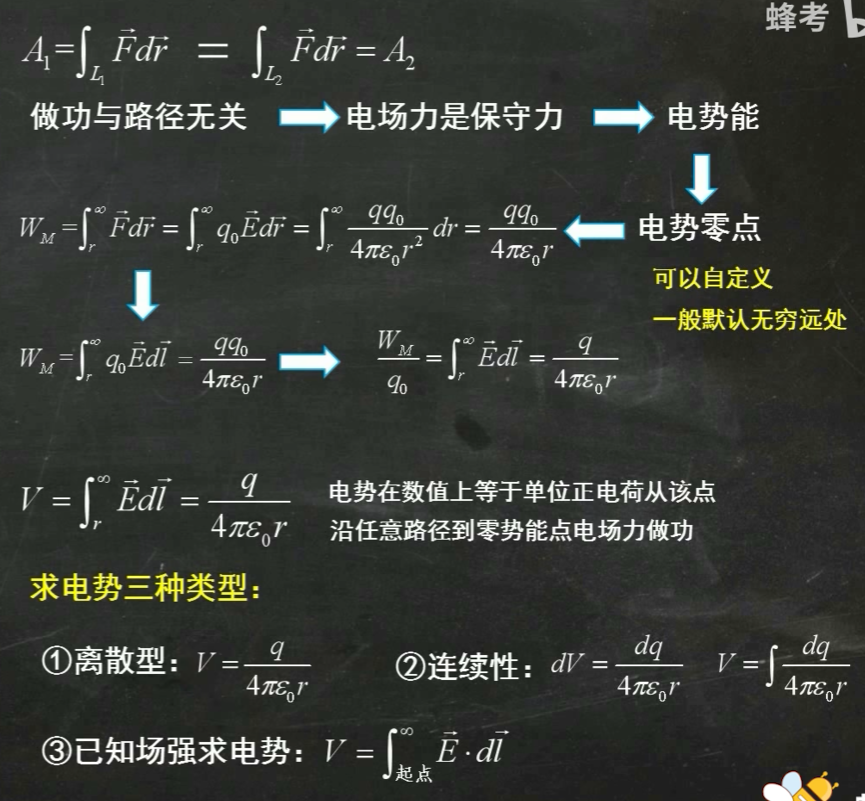 蜂考
A₁=∫_{L₁} F⃗dr⃗ = ∫_{L₂} F⃗dr⃗ = A₂
做功与路径无关 电场力是保守力 电势能
W_M=∫_r^∞ F⃗dr⃗ = ∫_r^∞ q₀E⃗dr⃗ = ∫_r^∞ qq₀/4πε₀r² dr = qq₀/4πε₀r 电势零点
可以自定义
一般默认无穷远处
W_M=∫_r^∞ q₀E⃗dl⃗ = qq₀/4πε₀r W_M/q₀ = ∫_r^∞ E⃗dl⃗ = q/4πε₀r
V = ∫_r^∞ E⃗dl⃗ = q/4πε₀r
电势在数值上等于单位正电荷从该点
沿任意路径到零势能点电场力做功
求电势三种类型：
①离散型：V = q/4πε₀r ②连续性：dV = dq/4πε₀r V = ∫ dq/4πε₀r
③已知场强求电势：V = ∫_{起点}^∞ E⃗·dl⃗